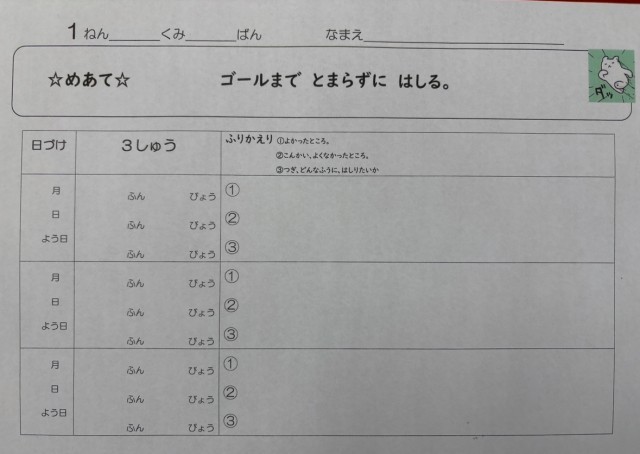 1ねん＿＿＿くみ＿＿＿ばん なまえ＿＿＿＿＿＿＿＿
☆めあて☆ ゴールまで とまらずに はしる。
ダッ
日づけ 3しゅう ふりかえり ①よかったところ。
②こんかい、よくなかったところ。
③つぎ、どんなふうに、はしりたいか
月 ふん びょう ①
日 ふん びょう ②
よう日 ふん びょう ③
月 ふん びょう ①
日 ふん びょう ②
よう日 ふん びょう ③
月 ふん びょう ①
日 ふん びょう ②
よう日 ふん びょう ③